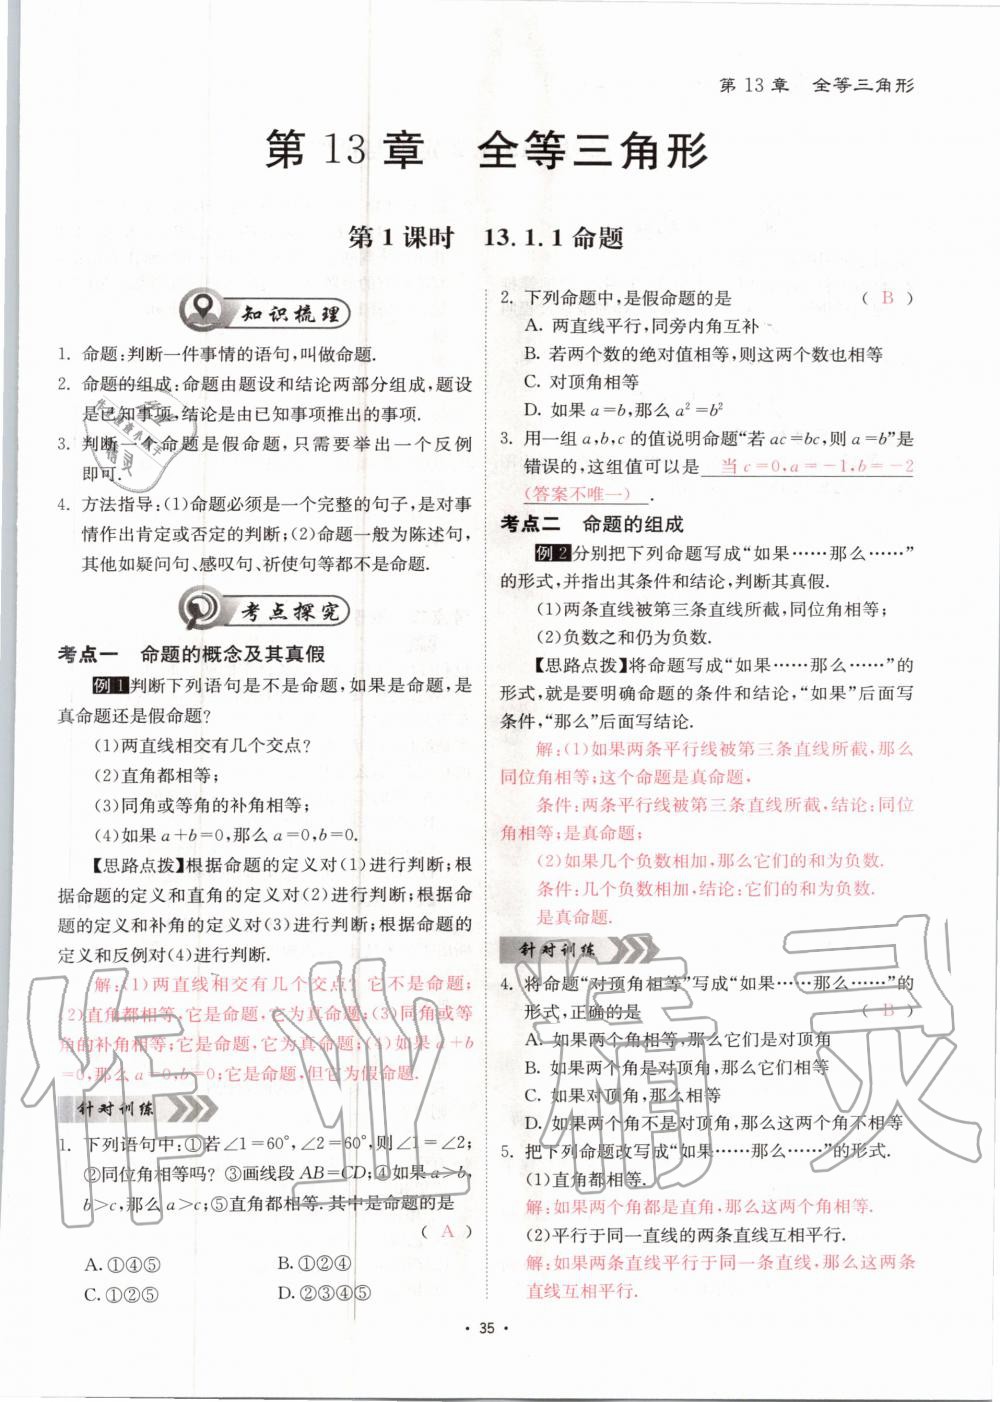 第13章　全等三角形
第13章　全等三角形
第1课时　13.1.1命题
知识梳理
1. 命题:判断一件事情的语句,叫做命题.
2. 命题的组成:命题由题设和结论两部分组成,题设
是已知事项,结论是由已知事项推出的事项.
3. 判断一个命题是假命题,只需要举出一个反例
即可.
4. 方法指导:(1)命题必须是一个完整的句子,是对事
情作出肯定或否定的判断;(2)命题一般为陈述句,
其他如疑问句、感叹句、祈使句等都不是命题.
考点探究
考点一　命题的概念及其真假
例1判断下列语句是不是命题,如果是命题,是
真命题还是假命题?
(1)两直线相交有几个交点?
(2)直角都相等;
(3)同角或等角的补角相等;
(4)如果a+b=0,那么a=0,b=0.
【思路点拨】根据命题的定义对(1)进行判断;根
据命题的定义和直角的定义对(2)进行判断;根据命
题的定义和补角的定义对(3)进行判断;根据命题的
定义和反例对(4)进行判断.
解:(1)两直线相交有几个交点? 它不是命题;
(2)直角都相等,它是命题,它为真命题;(3)同角或等
角的补角相等;它是命题,它为真命题;(4)如果a+b
=0,那么a=0,b=0;它是命题,但它为假命题.
针对训练
1. 下列语句中:①若∠1=60°,∠2=60°,则∠1=∠2;
②同位角相等吗? ③画线段AB=CD;④如果a>b,
b>c,那么a>c;⑤直角都相等.其中是命题的是
( A )
A.①④⑤　B.①②④
C.①②⑤　D.②③④⑤
2. 下列命题中,是假命题的是 ( B )
A. 两直线平行,同旁内角互补
B. 若两个数的绝对值相等,则这两个数也相等
C. 对顶角相等
D. 如果a=b,那么a²=b²
3. 用一组a,b,c的值说明命题“若ac=bc,则a=b”是
错误的,这组值可以是 当c=0,a=-1,b=-2
(答案不唯一) .
考点二　命题的组成
例2分别把下列命题写成“如果……那么……”
的形式,并指出其条件和结论,判断其真假.
(1)两条直线被第三条直线所截,同位角相等;
(2)负数之和仍为负数.
【思路点拨】将命题写成“如果……那么……”的
形式,就是要明确命题的条件和结论,“如果”后面写
条件,“那么”后面写结论.
解:(1)如果两条平行线被第三条直线所截,那么
同位角相等;这个命题是真命题,
条件:两条平行线被第三条直线所截,结论:同位
角相等;是真命题;
(2)如果几个负数相加,那么它们的和为负数.
条件:几个负数相加,结论:它们的和为负数.
是真命题.
针对训练
4. 将命题“对顶角相等”写成“如果……那么……”的
形式,正确的是 ( B )
A. 如果两个角相等,那么它们是对顶角
B. 如果两个角是对顶角,那么它们相等
C. 如果对顶角,那么相等
D. 如果两个角不是对顶角,那么这两个角不相等
5. 把下列命题改写成“如果……那么……”的形式.
(1)直角都相等.
解:如果两个角都是直角,那么这两个角相等.
(2)平行于同一直线的两条直线互相平行.
解:如果两条直线平行于同一条直线,那么这两条
直线互相平行.
• 35 •
作业精灵